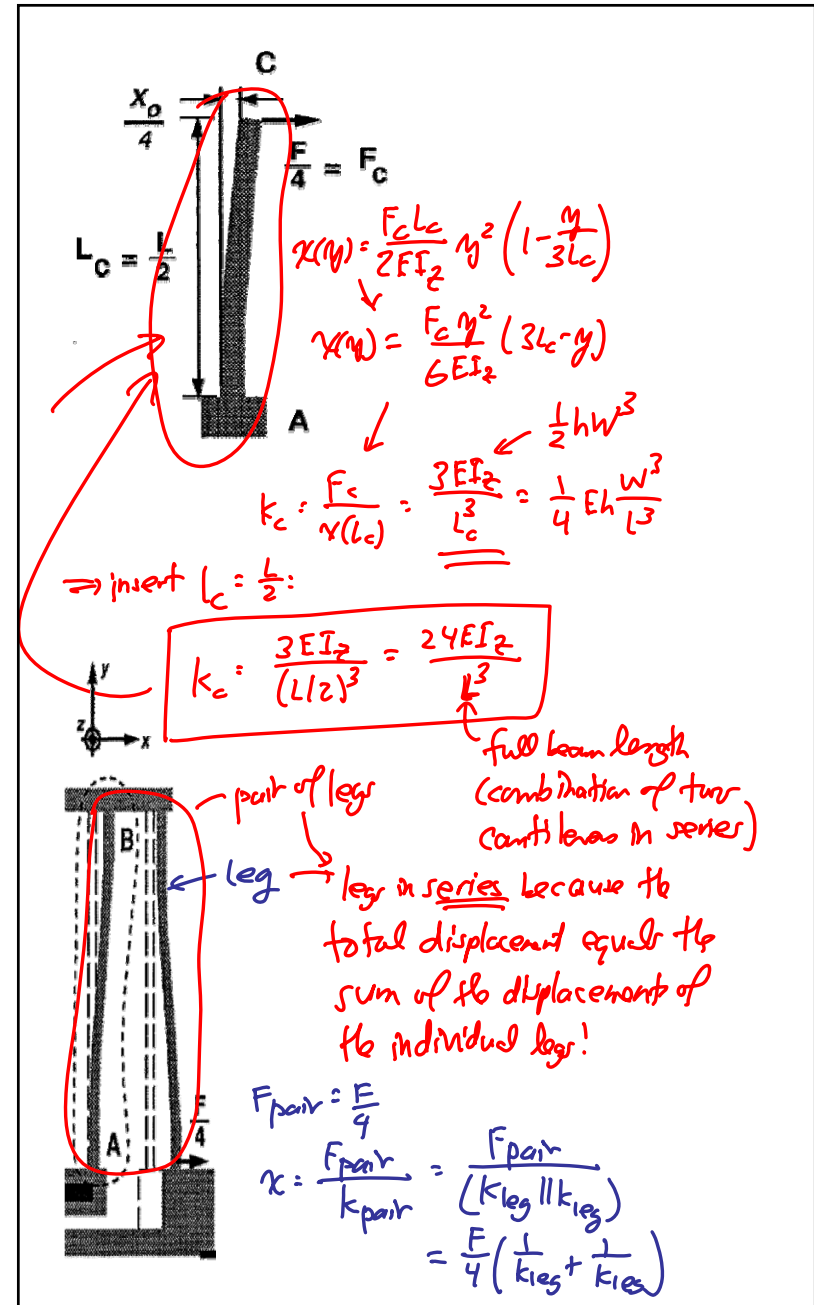 C
X_o/4
F/4 = F_C
L_C = L/2
x(y) = F_c L_c/2EI_z y² (1 - y/3L_c)
x(y) = F_c y²/6EI_z (3L_c - y)
A
1/2 hW³
k_c = F_c/x(L_c) = 3EI_z/L_c³ = 1/4 Eh W³/L³
⇒ insert L_c = L/2:
k_c = 3EI_z/(L/2)³ = 24EI_z/L³
y
z
x
full beam length
(combination of two
cantilevers in series)
pair of legs
B
leg
legs in series because the
total displacement equals the
sum of the displacements of
the individual legs!
F/4
A
F_pair = F/4
x = F_pair/k_pair = F_pair/(k_leg || k_leg)
= F/4 (1/k_leg + 1/k_leg)